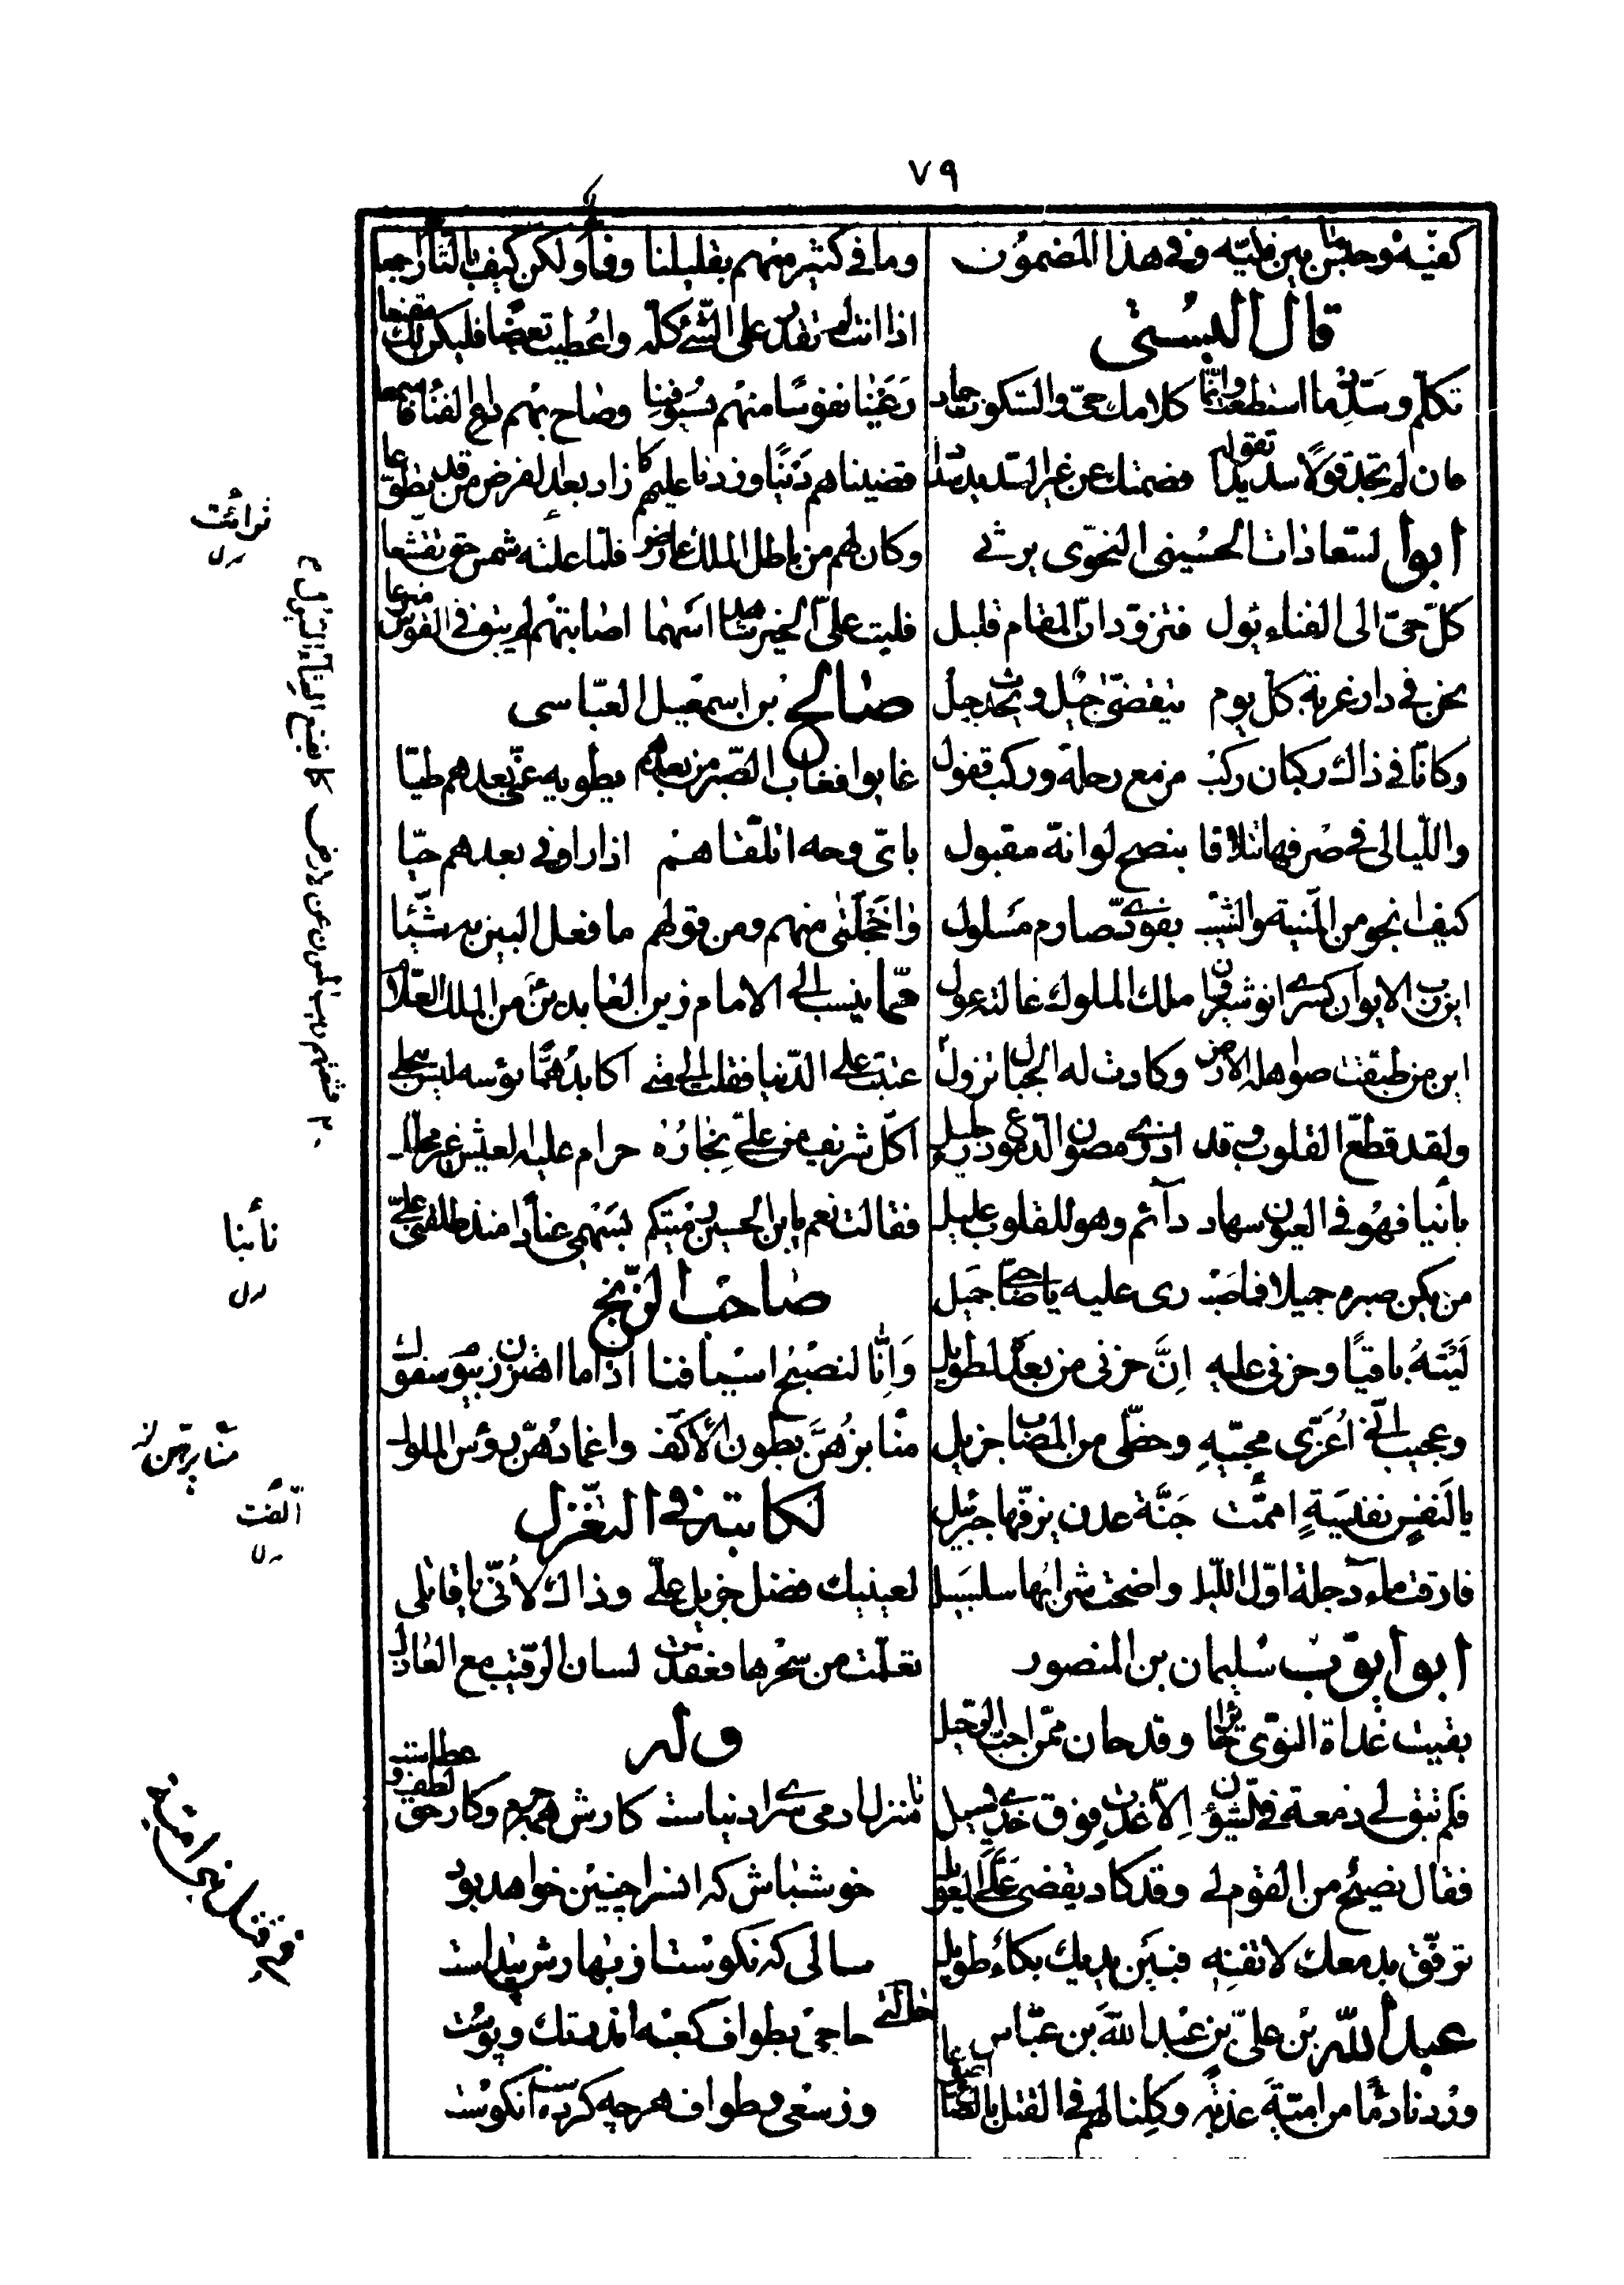 ٧٩
كفيه وحبس بين فكيه وفي هذا المضمون
قال البستى
تكلم وسدد ما استطعت وانما كلامك حي والسكوت جماد
فان لم تجد قولا سديدا تقوله فصمتك عن غير السديد سداد
ابو السعادات الحسينى النحوى يرثى
كل حى الى الفناء يؤل فتزود ان المقام قليل
نحن فى دار غربة كل يوم يتقضى جيل ويحدث جيل
وكانا فى ذاك ركبان ركب مزمع رحلة وركب قفول
والليالى فى صرفها تتلاقا بنصح لو انه مقبول
كيف انجو من المنية والشيب بفودى صارم مسلول
اين رب الايوان كسرى انوشروان ملك الملوك غالته غول
اين من طبقت صواهله الارض وكادت له الجبال تزول
ولقد قطع القلوب وقد اذرى مصون الدموع رزء جليل
يأنيا فهو فى العيون سهاد دآئم وهو للقلوب عليل
من يكن صبره جميلا فما صبرى عليه يا صاحبى جميل
ليته باقيا وحزنى عليه ان حزنى من بعده لطويل
وعجيب انى اعزى محبيه وحظى من المصاب جزيل
يا لنفس نفيسة اممت جنة عدن يزفها جبرئيل
فارقت ماء دجلة اول الليل واضحت شرابها سلسبيل
ابو ايوب سليمان بن المنصور
بقيت غداة النوى حائرا وقد حان ممن احب الرحيل
فلم تبق لى دمعة فى الشؤن الا غدت فوق خدى تسيل
فقال نصيح من القوم لى وقد كاد يقضى على العويل
ترفق بدمعك لا تفنه فبين يديك بكاء طويل
عبد الله بن على بن عبد الله بن عباس
وردنا دما من امية عذبة وكلنا لهم فى القتل بالصاع اصوعا
وما فى كثير منهم بقليلنا وفاء ولكن كيف بالثار اجمعا
اذا انت لم تقدر على الشئ كله واعطيت بعضا فليكن لك مقنعا
رعينا نفوسا منهم بسيوفنا وصاح بهم داع الفناء فاسمعا
قضيناهم دينا وزدنا عليهم كما زاد بعد الفرض من قد تطوعا
وكان لهم من باطل الملك عارض فلما علته شمس حق تقشعا
فليت على الخير شاهد اسهما اصابتهم لم يبق فى القوس منزعا
صالح بن اسمعيل العباسى
غابوا فغاب الصبر من بعدهم يطويه عنى بعدهم طيا
باى وجه اتلقاهم اذا راونى بعدهم حيا
واخجلتى منهم ومن قولهم ما فعل البين به شيئا
مما ينسب الى الامام زين العابدين من الملك العلام
عتبت على الدنيا فقلت الى متى اكابد هما بؤسه ليس ينجلى
اكل شريف من على نجاره حرام عليه العيش غير محلل
فقالت نعم يا بن الحسين رميتكم بسهمى عنادا منذ طلقنى على
صاحب الزنج
وانا لنصبح اسيافنا اذا ما اهتززن بيوم سفوك
منابرهن بطون الاكف واغمادهن رؤس الملوك
لكاتبه فى التغزل
لعينيك فضل جزيل على وذاك لانى يا قاتلى
تعلمت من سحرها فعقدت لسان الرقيب مع العاذل
وله
تا منزل ادمى سراى دنياست كارش همه جرم وكار حق لطف و عطاست
خوشباش كه آنسرا چنين خواهد بود
سالى كه نكوست از بهارش پيداست
خالى
حاجى بطواف كعبه اندر تك وپوست
وز سعى وطواف هرچه كرده است نكوست
نأنبا
الفت